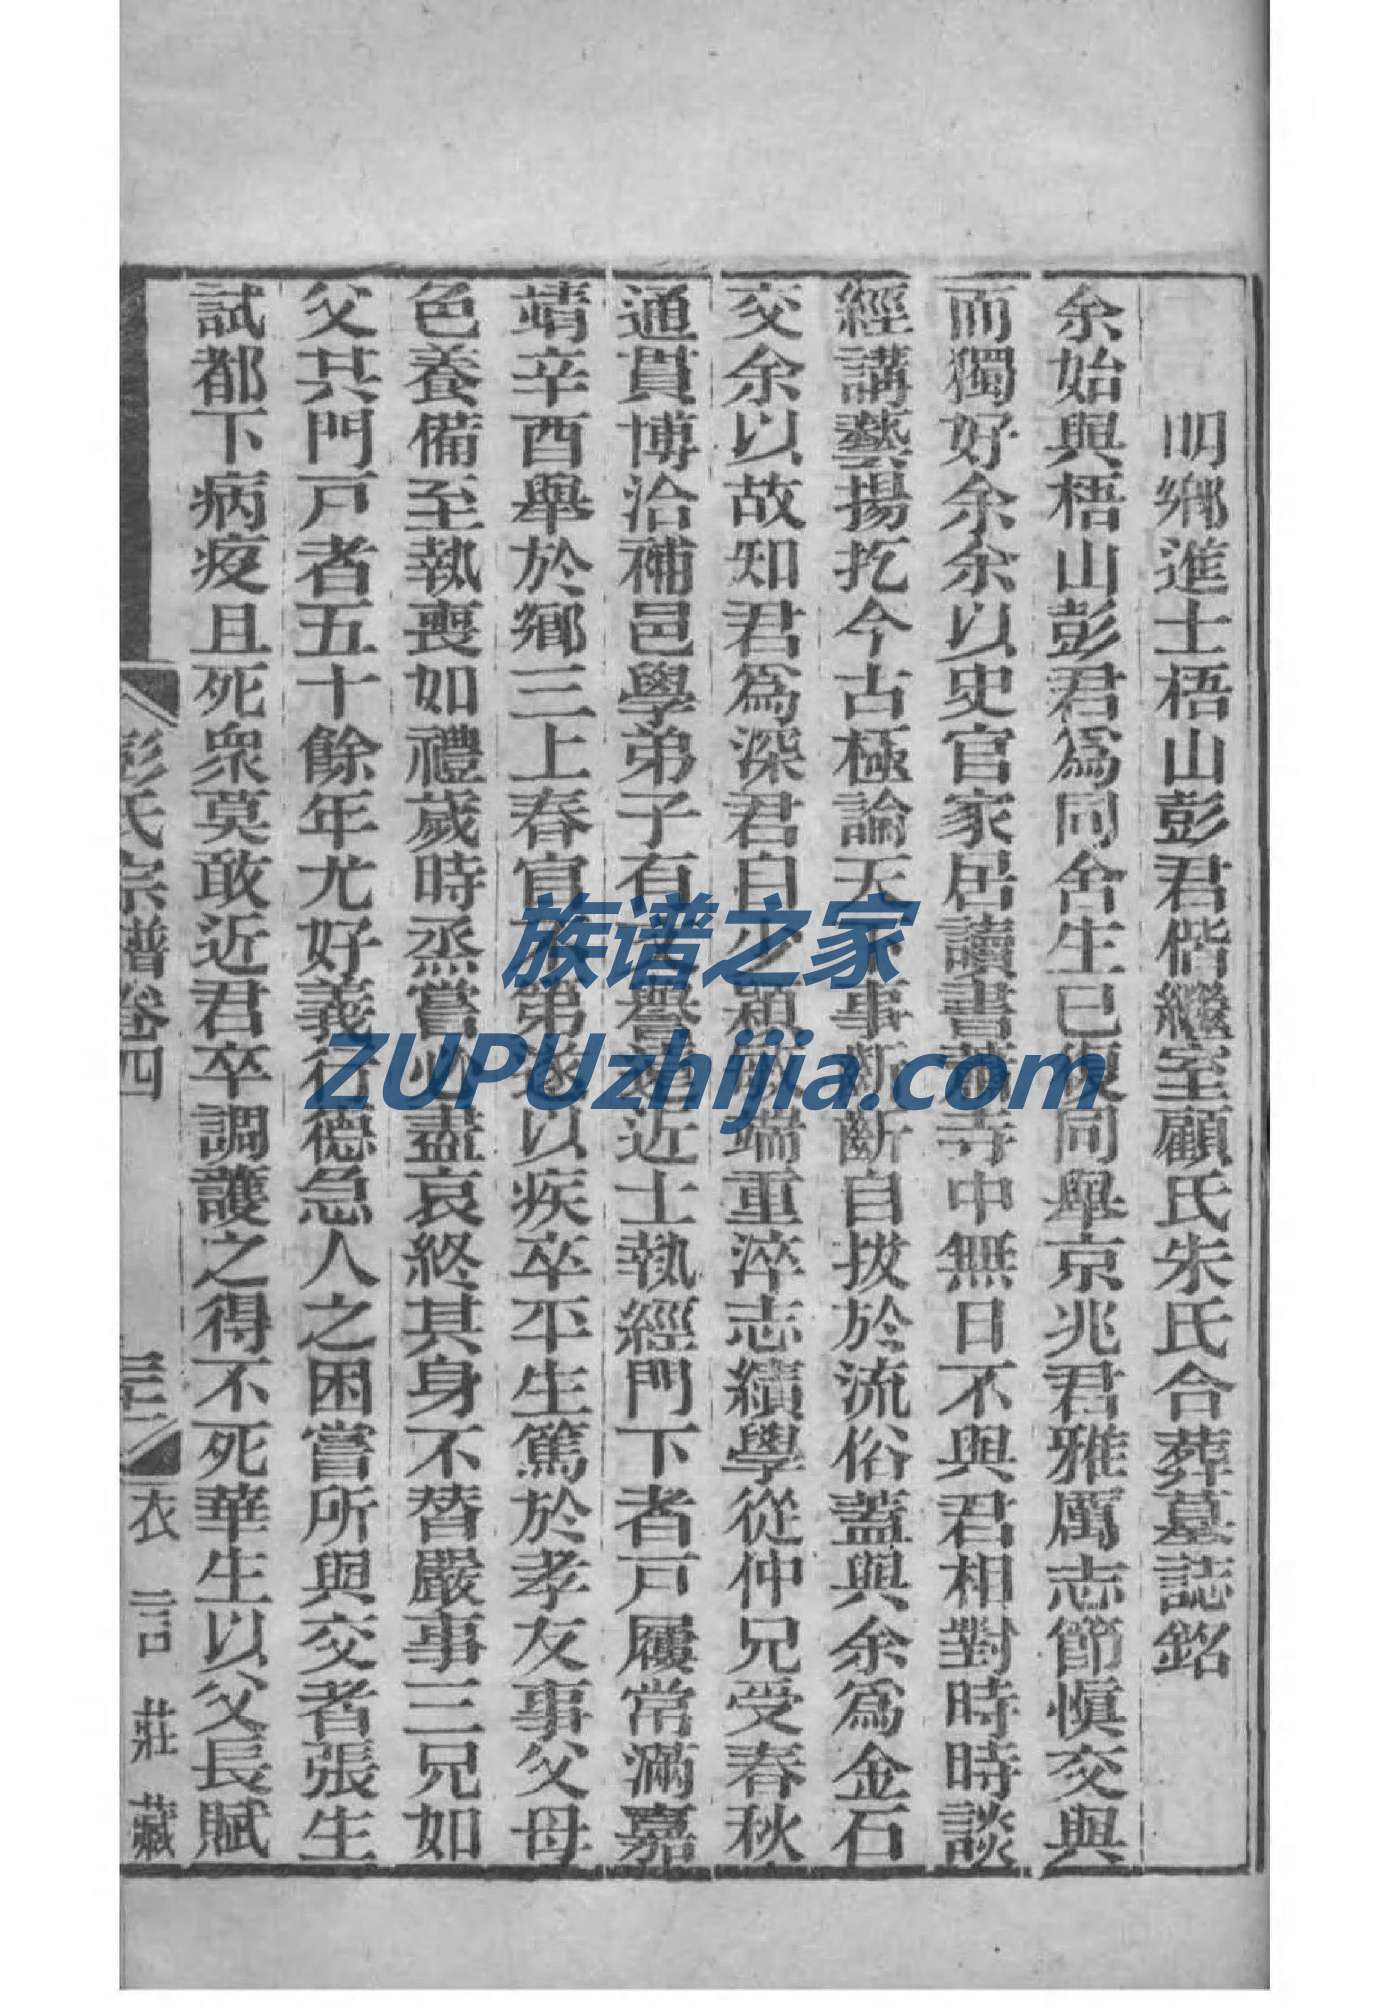 明鄉進士梧山彭君偕繼室顧氏朱氏合葬墓誌銘
余始與梧山彭君為同舍生已復同舉京兆君雅厲志節慎交與
而獨好余余以史官家居讀書蕭寺中無日不與君相對時時談
經講藝揚扢今古極論天下事斷斷自拔於流俗蓋與余為金石
交余以故知君為深君自少穎敏端重淬志績學從仲兄受春秋
通貫博洽補邑學弟子有聲譽遠近士執經門下者戶屨常滿嘉
靖辛酉舉於鄉三上春官不第遂以疾卒平生篤於孝友事父母
色養備至執喪如禮歲時烝嘗必盡哀終其身不替嚴事三兄如
父共門戶者五十餘年尤好義行德急人之困嘗所與交者張生
試都下病疫且死眾莫敢近君卒調護之得不死華生以父長賦
彭氏宗譜卷四
衣言莊藏
族谱之家
ZUPUzhijia.com